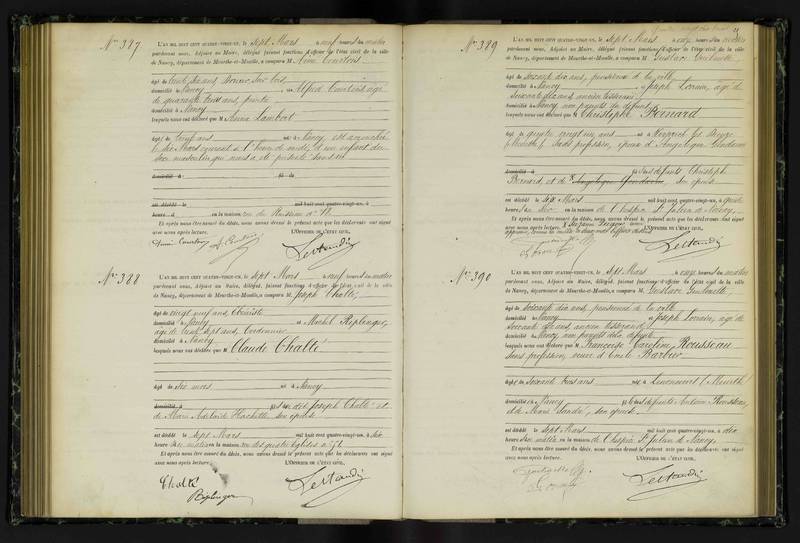 N° 387
L'AN MIL HUIT CENT QUATRE-VINGT-UN, le sept Mars à neuf heures du matin
pardevant nous, Adjoint au Maire, délégué faisant fonctions d'officier de l'état civil de la ville
de Nancy, département de Meurthe-et-Moselle, a comparu M
âgé de trente six ans
domicilié à Nancy, et Alfred Courtois âgé
de quarante trois ans, peintre
domicilié à Nancy
lesquels nous ont déclaré que M Anna Lambert
âgé de vingt ans né à Nancy est accouchée
le six Mars courant à l'heure de midi, d'un enfant du
sexe masculin qui nous a été présenté sans vie
domicilié à fils de
est décédé le mil huit cent quatre-vingt-un, à
heure à en la maison rue du Ruisseau n°
Et après nous être assuré du décès, nous avons dressé le présent acte que les déclarants ont signé
avec nous après lecture. L'OFFICIER DE L'ÉTAT CIVIL,
N° 388
L'AN MIL HUIT CENT QUATRE-VINGT-UN, le sept Mars à neuf heures du matin
pardevant nous, Adjoint au Maire, délégué, faisant fonctions d'officier de l'état civil de la ville
de Nancy, département de Meurthe-et-Moselle, a comparu M Joseph Chatté,
âgé de vingt neuf ans, ébéniste
domicilié à Nancy et Michel Riplinger,
âgé de trente sept ans, Cordonnier
domicilié à Nancy
lesquels nous ont déclaré que M Claude Chatté
âgé de six mois né à Nancy
domicilié à fils du dit Joseph Chatté et
de Marie Adélaïde Hachette son épouse
est décédé le sept Mars mil huit cent quatre-vingt-un, à six
heure du matin en la maison rue des quatre Eglises n° 71
Et après nous être assuré du décès, nous avons dressé le présent acte que les déclarants ont signé
avec nous après lecture. L'OFFICIER DE L'ÉTAT CIVIL,
Chatté
Riplinger
N° 389
L'AN MIL HUIT CENT QUATRE-VINGT-UN, le sept Mars à onze heures du matin
pardevant nous, Adjoint au Maire, délégué faisant fonctions d'officier de l'état civil de la ville
de Nancy, département de Meurthe-et-Moselle, a comparu M Gustave
âgé de soixante dix ans, pensionné de la ville
domicilié à Nancy et Joseph Lorrain, âgé de
soixante dix ans, ancien tisserand
domicilié à Nancy non parents du défunt
lesquels nous ont déclaré que M Christophe Bernard
âgé de quatre vingt un ans né à
sans profession, époux d'Angélique
domicilié à fils des défunts Christophe
Bernard, et de son épouse
est décédé le six Mars mil huit cent quatre-vingt-un, à quatre
heure du soir en la maison de l'hospice St Julien de Nancy.
Et après nous être assuré du décès, nous avons dressé le présent acte que les déclarants ont signé
avec nous après lecture. L'OFFICIER DE L'ÉTAT CIVIL,
N° 390
L'AN MIL HUIT CENT QUATRE-VINGT-UN, le sept Mars à onze heures du matin
pardevant nous, Adjoint au Maire, délégué, faisant fonctions d'officier de l'état civil de la ville
de Nancy, département de Meurthe-et-Moselle, a comparu M Gustave
âgé de soixante dix ans, pensionné de la ville
domicilié à Nancy et Joseph Lorrain, âgé de
soixante dix ans, ancien tisserand
domicilié à Nancy non parents de la défunte
lesquels nous ont déclaré que M Françoise Caroline Rousseau
sans profession, veuve d'Emile Barbier
âgé de soixante trois ans née à
domicilié à Nancy fille des défunts Antoine Rousseau,
et de Marie son épouse
est décédé le sept Mars mil huit cent quatre-vingt-un, à dix
heure du matin en la maison de l'hospice St Julien de Nancy.
Et après nous être assuré du décès, nous avons dressé le présent acte que les déclarants ont signé
avec nous après lecture. L'OFFICIER DE L'ÉTAT CIVIL,